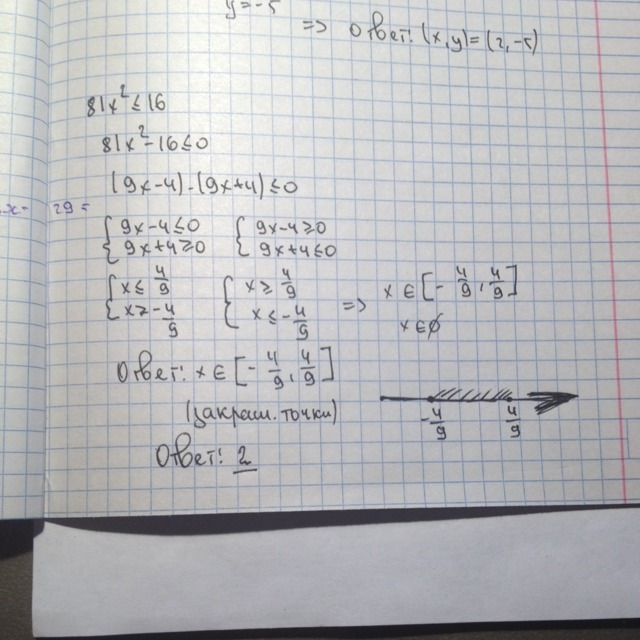 y=-5
=> Ответ: (x,y)=(2,-5)
81x² ≤ 16
81x² - 16 ≤ 0
(9x-4)·(9x+4) ≤ 0
x- 29=
{ 9x-4≤0 { 9x-4≥0
{ 9x+4≥0 { 9x+4≤0
{ x ≤ 4/9 { x ≥ 4/9 => x ∈ [-4/9, 4/9]
{ x ≥ -4/9 { x ≤ -4/9 x ∈ ∅
Ответ: x ∈ [-4/9, 4/9]
(закраш. точки)
-4/9 4/9
Ответ: 2